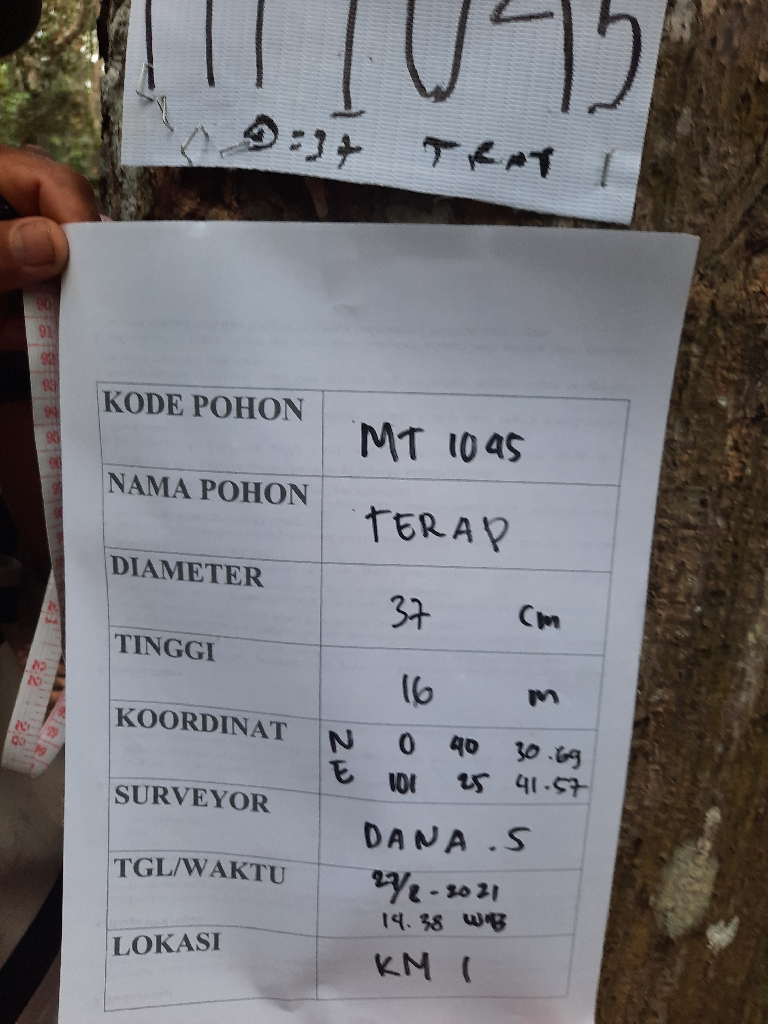 MT 1045
Ø = 37 TRAT
KODE POHON MT 1045
NAMA POHON TERAP
DIAMETER 37 cm
TINGGI 16 m
KOORDINAT N 0 40 30.69
E 101 25 41.57
SURVEYOR DANA . S
TGL/WAKTU 27/2 - 2021
14.38 WIB
LOKASI KM 1